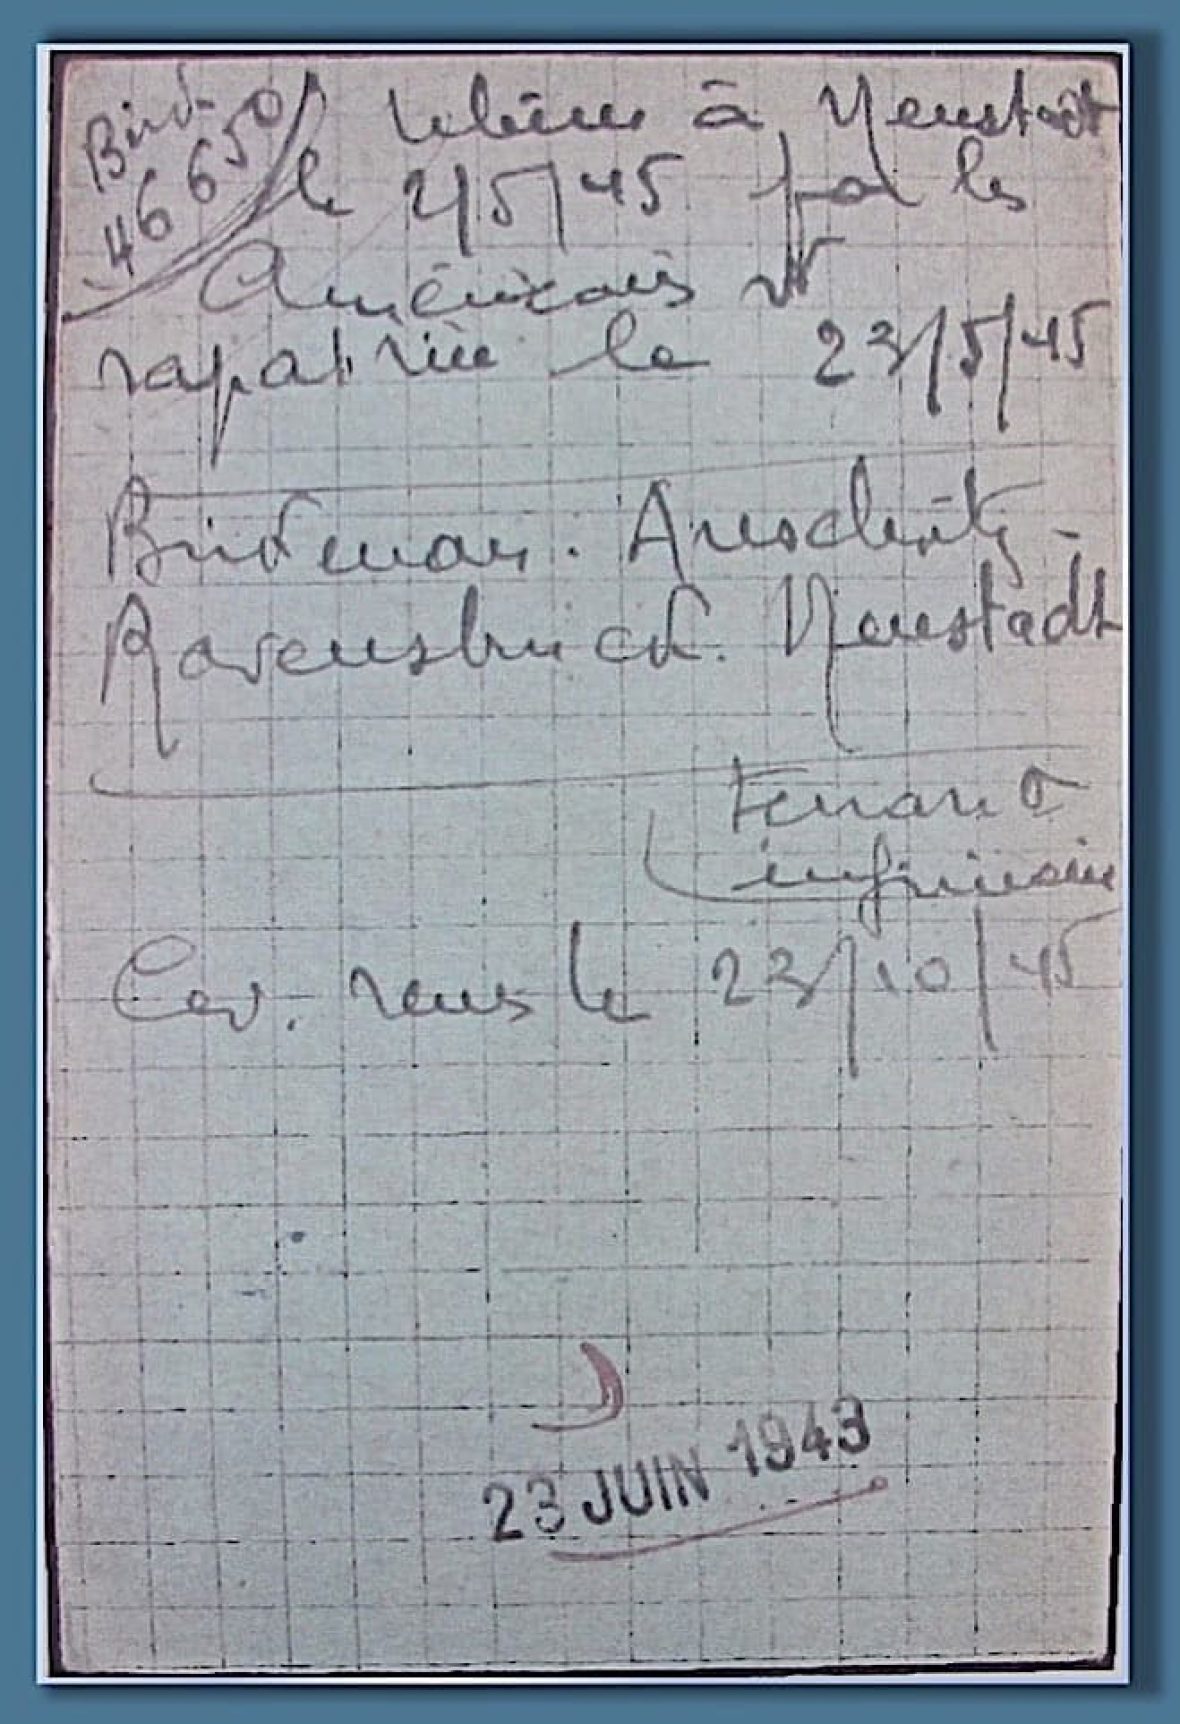 Bird.
46650
libérée à Neustadt
le 2/5/45 par les
Américains et
rapatriée le 23/5/45
Birkenau. Auschwitz -
Ravensbruck. Neustadt
infirmière
rens le 23/10/45
23 JUIN 1943